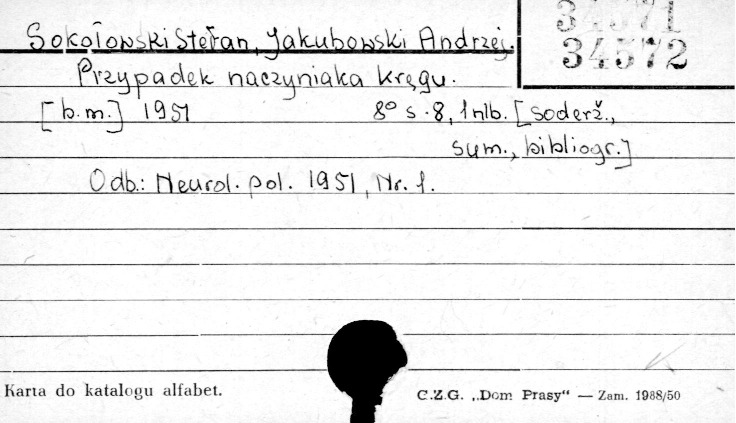 34571
34572
Sokołowski Stefan, Jakubowski Andrzej.
Przypadek naczyniaka kręgu.
[b.m.] 1951 8° s. 8, 1 nlb. [soderž.,
sum., bibliogr.]
Odb.: Neurol. pol. 1951, Nr. 1.
Karta do katalogu alfabet.
C.Z.G. „Dom Prasy" — Zam. 1988/50